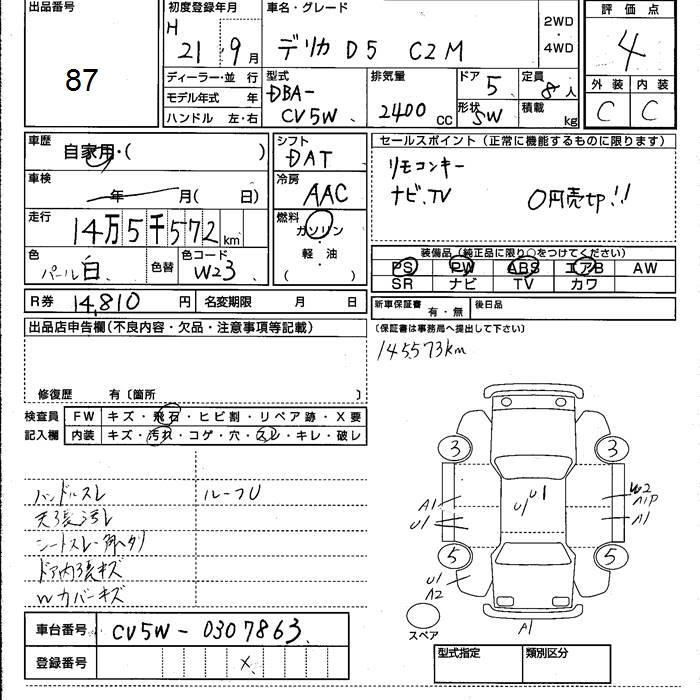 出品番号
87
初度登録年月
H
21 9月
車名・グレード
デリカ D5 C2M
2WD
・
4WD
評価点
4
ディーラー・並 行
モデル年式 年
ハンドル 左・右
型式
DBA-
CV5W
排気量
2400 cc
ドア
5
形状
5W
定員
8人
積載
kg
外装 内装
C C
車歴
自家用・( )
車検
年 月( 日)
走行
14万5千572km
色
パール白
色替
色コード
W23
シフト
DAT
冷房
AAC
燃料
ガソリン
・
軽・油
( )
セールスポイント(正常に機能するものに限ります)
リモコンキー
ナビ.TV 0円売up!!
装備品(純正品に限り○をつけてください)
PS PW ABS エアB AW
SR ナビ TV カワ
R券 14,810 円 名変期限 月 日
新車保証書 有・無 後日品
(保証書は事務局へ提出して下さい)
145573km
出品店申告欄(不良内容・欠品・注意事項等記載)
修復歴 有〔箇所 〕
検査員 FW キズ・飛石・ヒビ割・リペア跡・X要
記入欄 内装 キズ・汚れ・コゲ・穴・スレ・キレ・破レ
ハンドルスレ ルーフU
天張汚レ
シートスレ
ドア内張キズ
Wカバーキズ
3 3
A1 U1 U1 W2
A1P
U1 A1
5 5
U1
A2
スペア
A1
車台番号 CV5W-0307863
登録番号 X
型式指定 類別区分